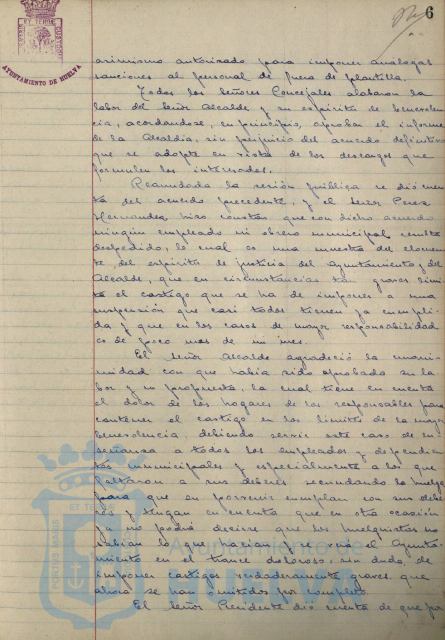 6
AYUNTAMIENTO DE HUELVA
asimismo autorizado para imponer analogas
sanciones al personal de fuera de plantilla.
Todos los Señores Concejales alabaron la
labor del Señor Alcalde y su espiritu de benevolen
cia, acordandose, en principio, aprobar el informe
de la Alcaldia, sin perjuicio del acuerdo definitivo
que se adopte en vista de los descargos que
formulen los interesados.
Reanudada la sesión pública se dió cuen
ta del acuerdo precedente, y el Señor Perez
Hernandez hizo constar que con dicho acuerdo
ningun empleado ni obrero municipal resulta
despedido, lo cual es una muestra del
del espiritu de justicia del Ayuntamiento y del
Alcalde, que en circunstancias tan graves limi
ta el castigo que se ha de imponer a una
suspensión que casi todos tienen ya cumpli
da y que en los casos de mayor responsabilidad
es de poco mas de un mes.
El Señor Alcalde agradeció la unani
midad con que habia sido aprobada su la
bor y su propuesta, la cual tiene en cuenta
el dolor de los hogares de los responsables para
contener el castigo en los limites de la mayor
benevolencia, debiendo servir este caso de en
señanza a todos los empleados y dependien
tes municipales y especialmente a los que
faltaron a sus deberes secundando la huelga
para que en porvenir cumplan con sus debe
res y tengan en cuenta que en otra ocasión
ya no podrá decirse que los huelguistas no
sabian lo que hacian y se verá el Ayunta
miento en el trance doloroso, sin duda, de
imponer castigos verdaderamente graves, que
ahora se han omitido por completo.
El Señor Presidente dió cuenta de que por
Ayuntamiento de
HUELVA